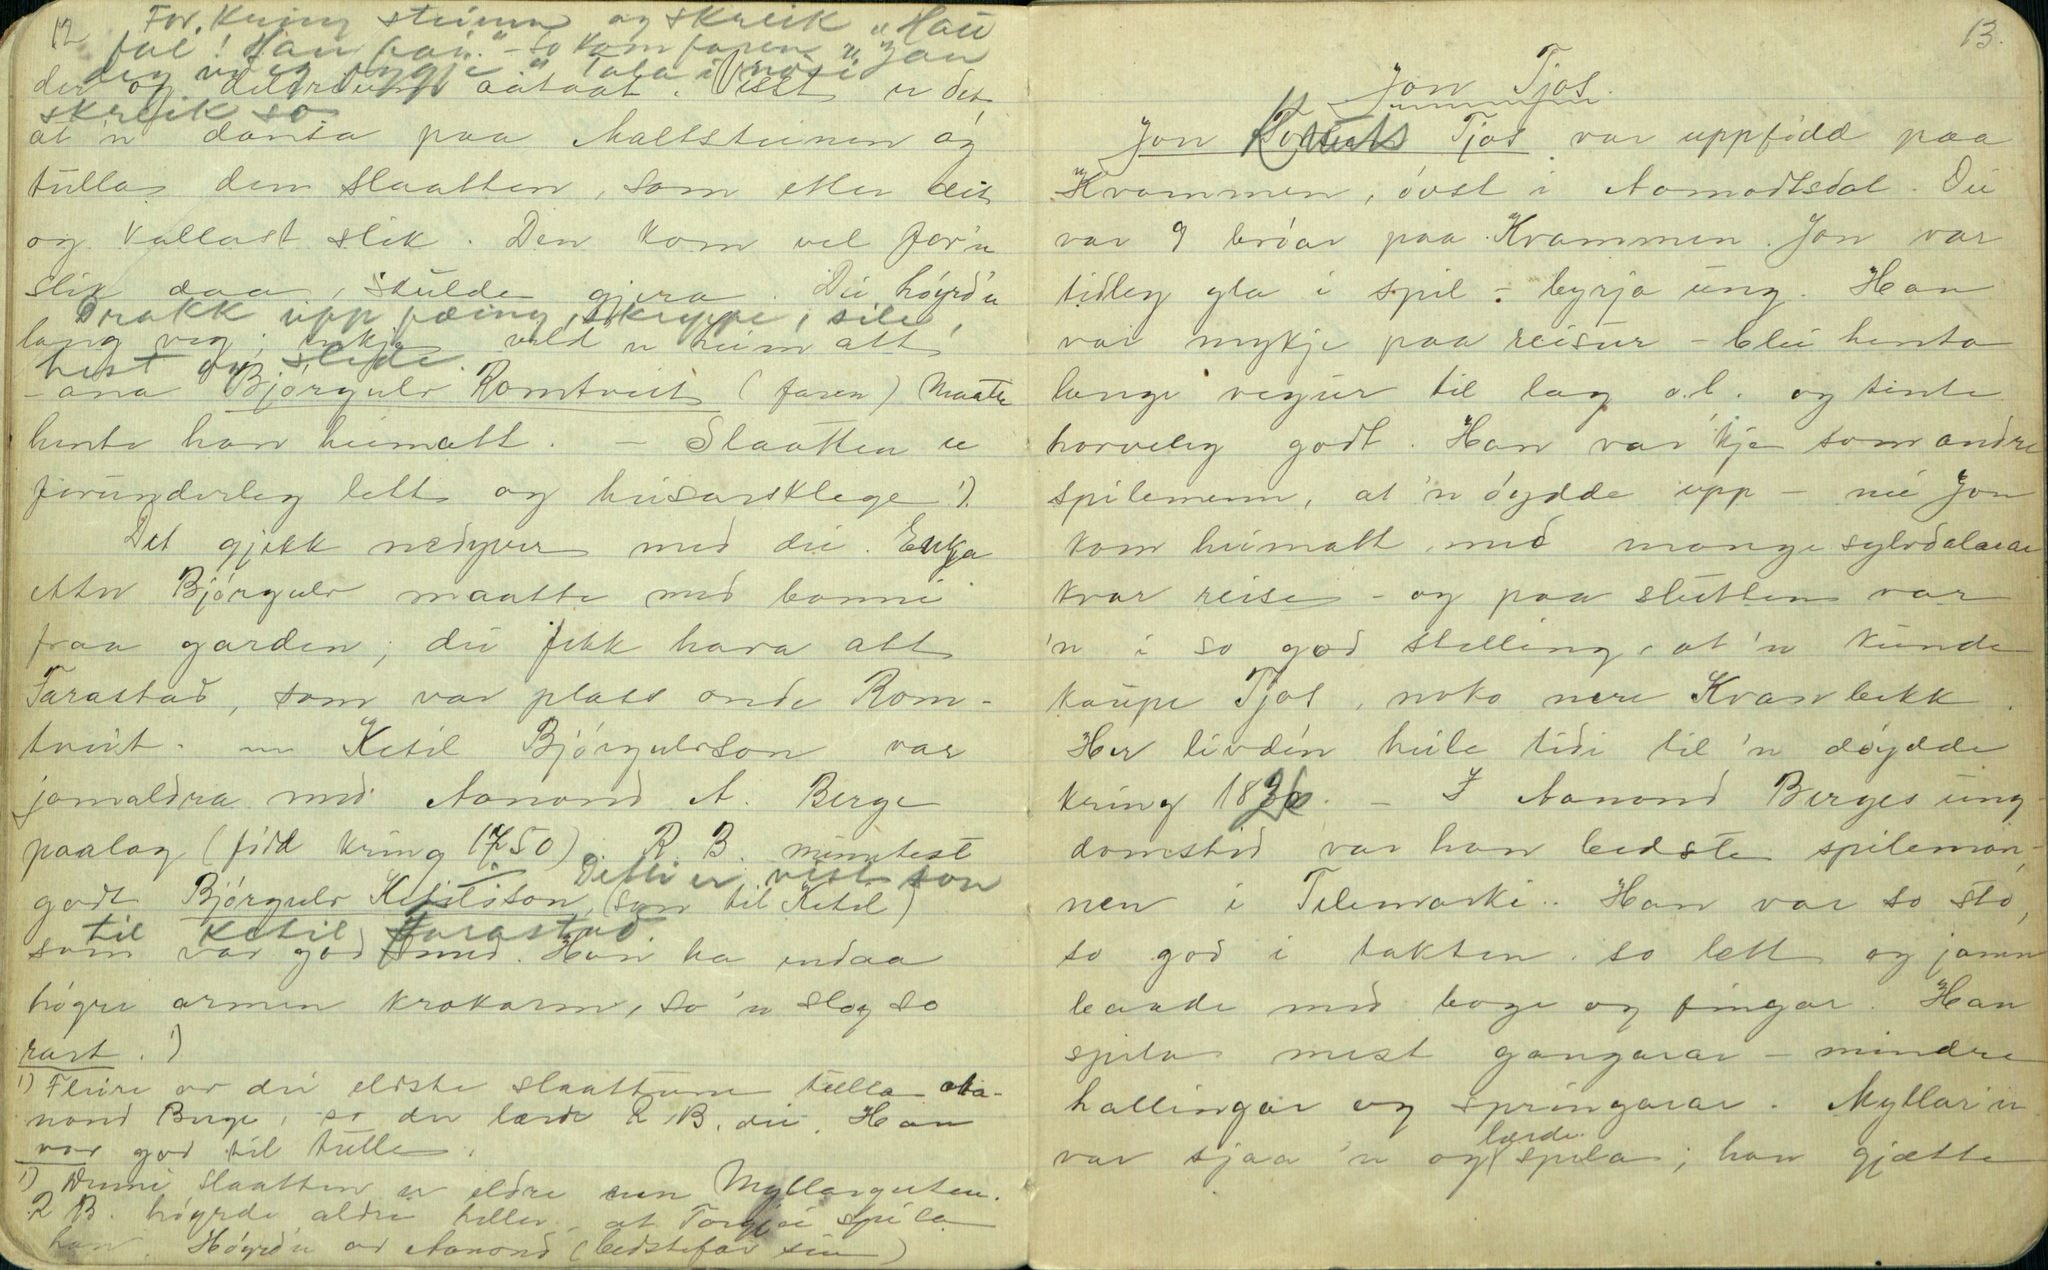 12
For kring steinen og skreik "Hau
fal! Hau fai." - So kom faren "Jon
der og
skreik so
at 'n dansa paa Maltsteinen og
tulla den slaatten, som etter dit
og kallast slik. Den kom vel for 'n
slik daa, skulde gjera. Dei høyrd 'n
Drakk upp pæing, skreppe, sile,
lang veg; inkje vild 'n heim att
hest og slede.
- ana Bjørgulv Romtveit (faren) maatte
henta han heimatt. - Slaatten er
forunderleg lett og huisarsklege 1).
Det gjekk nedyver med dei. Enkja
etter Bjørgulv maatte med bonni
fraa garden; dei fekk hava att
Tarastad, som var plass onde Rom-
tveit. - Ketil Bjørgulvson var
jamaldra med Aanond A. Berge
paalag (fødd kring 1750). R. B. minntest
godt Bjørgulv Ketilsson, (son til Ketil)
Dette er visst son
til Ketil Tarastad
som var god smed. Han ha endaa
høgre armen krokarm, so 'n slog so
rart. 1)
1) Fleire av dei eldste slaattune tulla Aa-
nond Berge, so der lærde R. B. dei. Han
var god til tulle.
1) Denne slaatten er eldre enn Myllarguten.
R B. høyrde aldri heller, at Torgjei spila
han. Høyrd'n av Aanond (bedstefar sin)
13.
Jon Tjos.
Jon Tjos var uppfødd paa
Kvammen, øvst i Aamodtsdal. Dei
var 9 brøar paa Kvammen. Jon var
tidleg gla i spil - byrja ung. Han
var mykje paa reisur - blei henta
lange vegur til lag o.l. og tente
horveleg godt. Han var 'kje som andre
spilemenn, at 'n øydde upp - nei Jon
kom heimatt med mange sylvdalarar
kvar reise - og paa slutten var
'n i so god stelling, at 'n kunde
kaupe Tjos, noko nere Kvanbekk.
Her livdén heile tidi til 'n døydde
kring 18. - I Aanond Berges ung-
domstid var han bedste spileman-
nen i Telemarki. Han var so stø,
so god i takten, so lett og jamn
baade med boge og fingar. Han
spila mest gangarar - mindre
hallingar og springarar. Myllar'n
var sjaa 'n og lærde spila; han gjætte